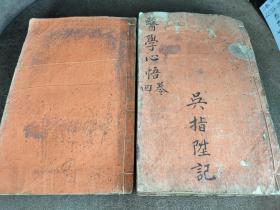 醫學心悟
卷四
吳指陞記